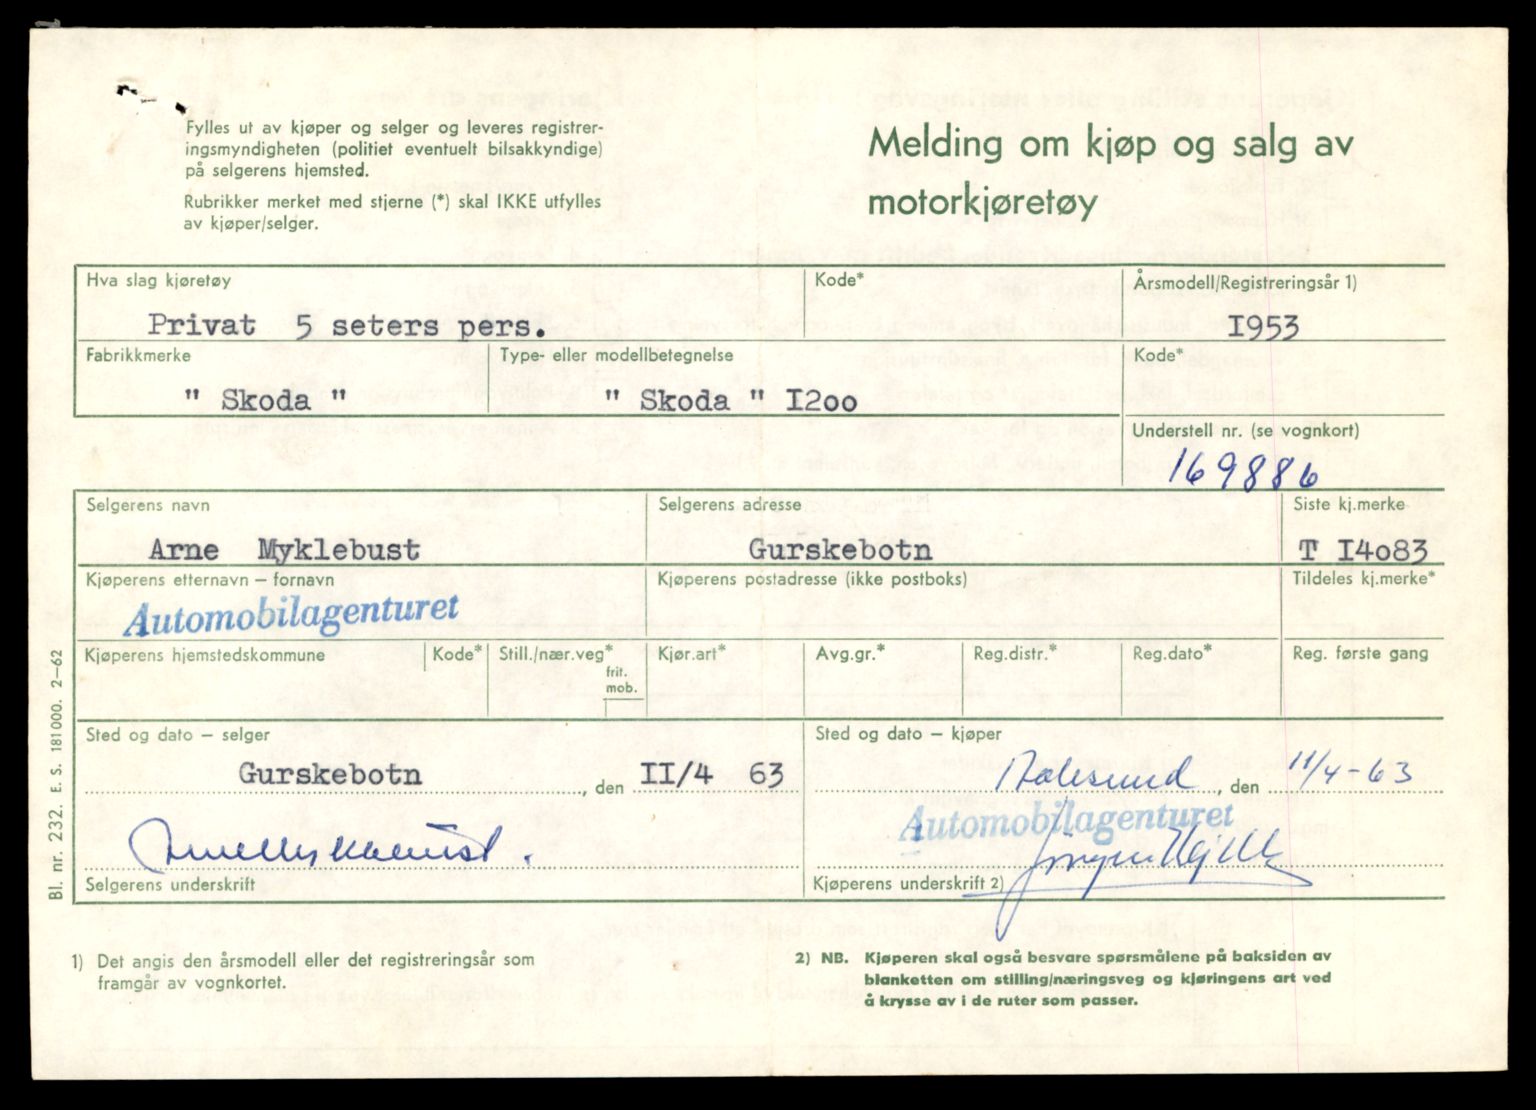 Fylles ut av kjøper og selger og leveres registrer-
ingsmyndigheten (politiet eventuelt bilsakkyndige)
på selgerens hjemsted.
Rubrikker merket med stjerne (*) skal IKKE utfylles
av kjøper/selger.
Melding om kjøp og salg av
motorkjøretøy
Hva slag kjøretøy
Kode*
Årsmodell/Registreringsår 1)
Privat 5 seters pers.
I953
Fabrikkmerke
Type- eller modellbetegnelse
Kode*
" Skoda "
" Skoda " I2oo
Understell nr. (se vognkort)
169886
Selgerens navn
Selgerens adresse
Siste kj.merke
Arne Myklebust
Gurskebotn
T I4o83
Kjøperens etternavn – fornavn
Kjøperens postadresse (ikke postboks)
Tildeles kj.merke*
Automobilagenturet
Kjøperens hjemstedskommune
Kode*
Still./nær.veg*
frit.
mob.
Kjør.art*
Avg.gr.*
Reg.distr.*
Reg.dato*
Reg. første gang
Sted og dato – selger
Sted og dato – kjøper
Gurskebotn, den II/4 63
Aalesund, den 11/4-63
Automobilagenturet
Arne Myklebust.
Jörgen
Selgerens underskrift
Kjøperens underskrift 2)
Bl. nr. 232. E. S. 181000. 2–62
1) Det angis den årsmodell eller det registreringsår som
framgår av vognkortet.
2) NB. Kjøperen skal også besvare spørsmålene på baksiden av
blanketten om stilling/næringsveg og kjøringens art ved
å krysse av i de ruter som passer.